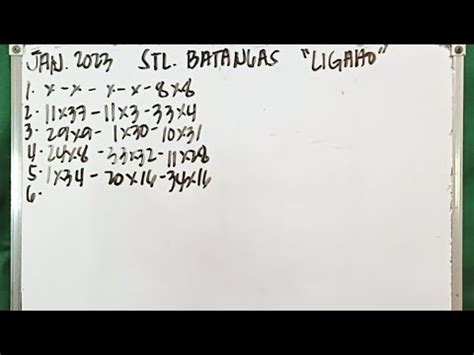 JAN. 2023 STL. BATANGAS "LIGAHO"
1. x - x - x - x - 8x8
2. 11x37 - 11x3 - 33x4
3. 29x9 - 1x30 - 10x31
4. 24x8 - 33x32 - 11x28
5. 1x34 - 20x16 - 34x16
6.